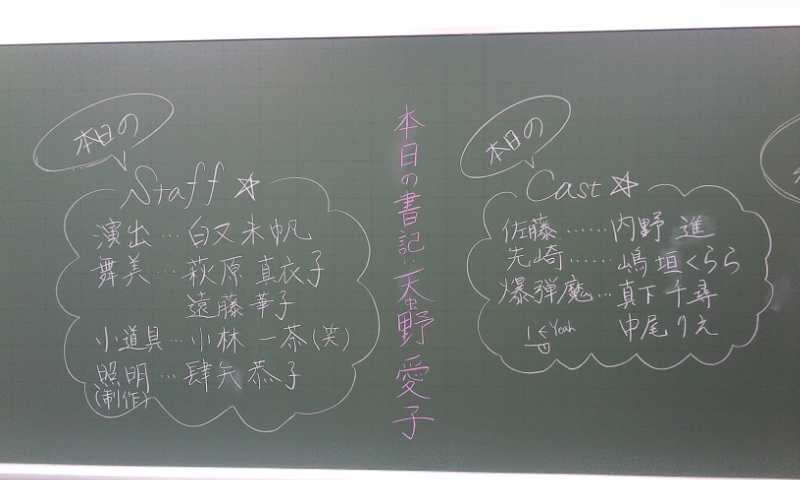 本日の
Staff☆
演出…白又未帆
舞美…萩原真衣子
遠藤華子
小道具…小林一茶(笑)
照明…肆矢恭子
(制作)
本日の書記 天野愛子
本日の
Cast☆
佐藤……内野 進
先崎……嶋垣くらら
爆弾魔…真下千尋
Yeah 中尾りえ